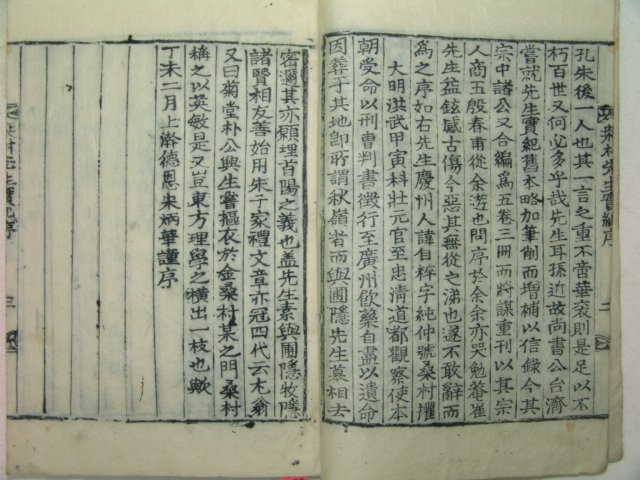 孔朱後一人也其一言之重不啻華袞則是足以不
朽百世又何必多乎哉先生耳孫近故尚書公台濟
嘗就先生實紀舊本略加筆削而增補以信錄今其
宗中諸公又合編爲五卷三冊而將謀重刊以其宗
人商五殷春甫從余游也問序於余余亦哭勉菴崔
先生益鉉感古傷今惡其無從之涕也遂不敢辭而
爲之序如右先生慶州人諱自粹字純仲號桑村擢
大明洪武甲寅科壯元官至忠淸道都觀察使本
朝受命以刑曹判書徵行至廣州飮藥自盡以遺命
因葬于其地卽所謂秋嶺者而與圃隱先生墓相去
密邇其亦願埋首陽之義也盖先生素與圃隱牧隱
諸賢相友善始用朱子家禮文章亦冠四代云尤翁
又曰菊堂朴公興生嘗摳衣於金桑村某之門桑村
稱之以英敏是又豈東方理學之橫出一枝也歟
丁未二月上澣德恩宋炳華謹序
桑村先生實紀序
二
桑村先生實紀序
三